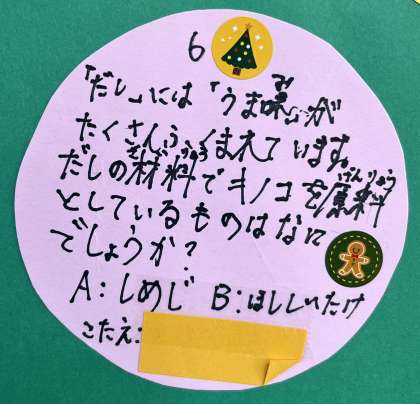 6
「だし」には「うま味」が
たくさんふくまれています。
だしの材料でキノコを原料
としているものはなに
でしょうか?
A:しめじ B:ほししいたけ
こたえ: